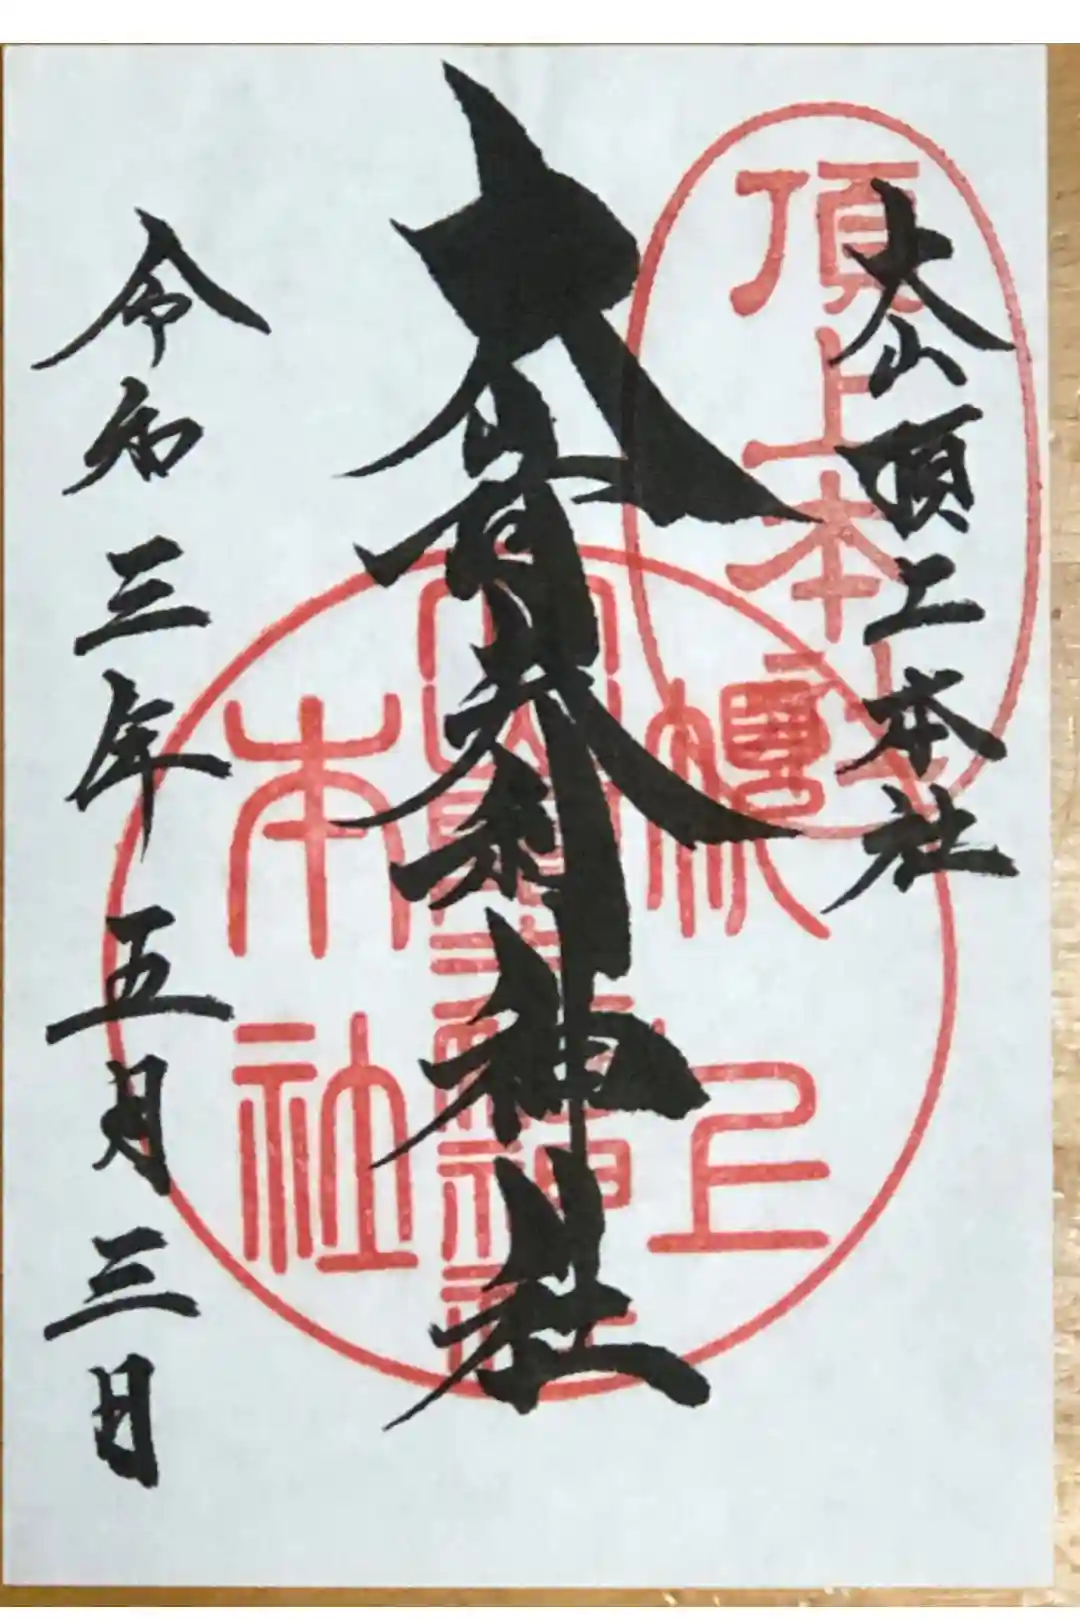 大山頂上本社
頂上本社
大山阿夫利神社
頂上
本社
令和三年五月三日